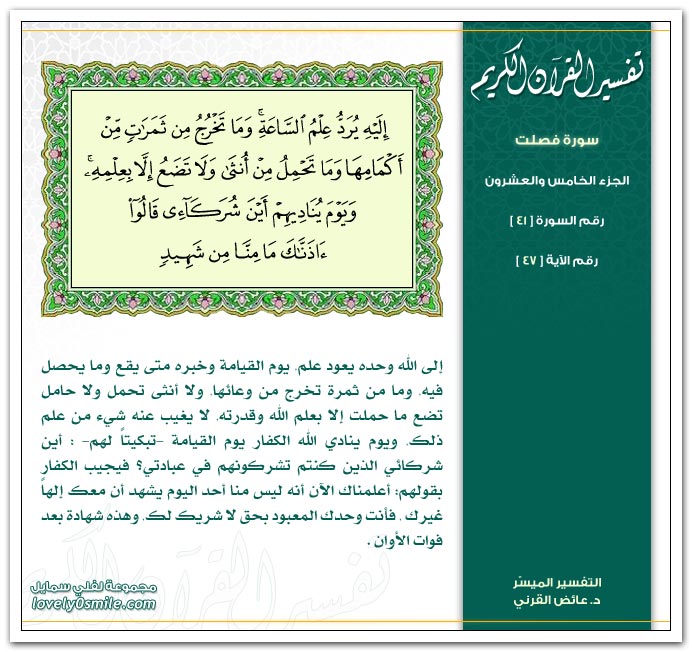 تفسير القرآن الكريم
سورة فصلت
الجزء الخامس والعشرون
رقم السورة [ ٤١ ]
رقم الآية [ ٤٧ ]
إِلَيْهِ يُرَدُّ عِلْمُ ٱلسَّاعَةِ ۚ وَمَا تَخْرُجُ مِن ثَمَرَٰتٍ مِّنْ
أَكْمَامِهَا وَمَا تَحْمِلُ مِنْ أُنثَىٰ وَلَا تَضَعُ إِلَّا بِعِلْمِهِۦ ۚ
وَيَوْمَ يُنَادِيهِمْ أَيْنَ شُرَكَآءِى قَالُوٓا۟
ءَاذَنَّٰكَ مَا مِنَّا مِن شَهِيدٍ
إلى الله وحده يعود علم، يوم القيامة وخبره متى يقع وما يحصل
فيه، وما من ثمرة تخرج من وعائها، ولا أنثى تحمل ولا حامل
تضع ما حملت إلا بعلم الله وقدرته، لا يغيب عنه شيء من علم
ذلك، ويوم ينادي الله الكفار يوم القيامة -تبكيتاً لهم- : أين
شركائي الذين كنتم تشركونهم في عبادتي؟ فيجيب الكفار
بقولهم: أعلمناك الآن أنه ليس منا أحد اليوم يشهد أن معك إلهاً
غيرك ، فأنت وحدك المعبود بحق لا شريك لك، وهذه شهادة بعد
فوات الأوان .
التفسير الميسّر
د. عائض القرني
مجموعة لفلي سمايل
lovely0smile.com
تفسير القرآن الكريم